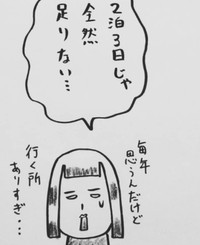 2泊3日じゃ
全然
足りない…
毎年
思うんだけど
行く所
ありすぎ…